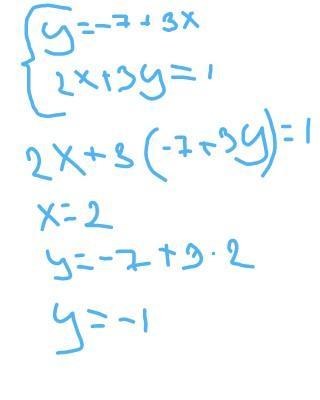 y=-7+3x
2x+3y=1
2x+3(-7+3y)=1
x=2
y=-7+3·2
y=-1